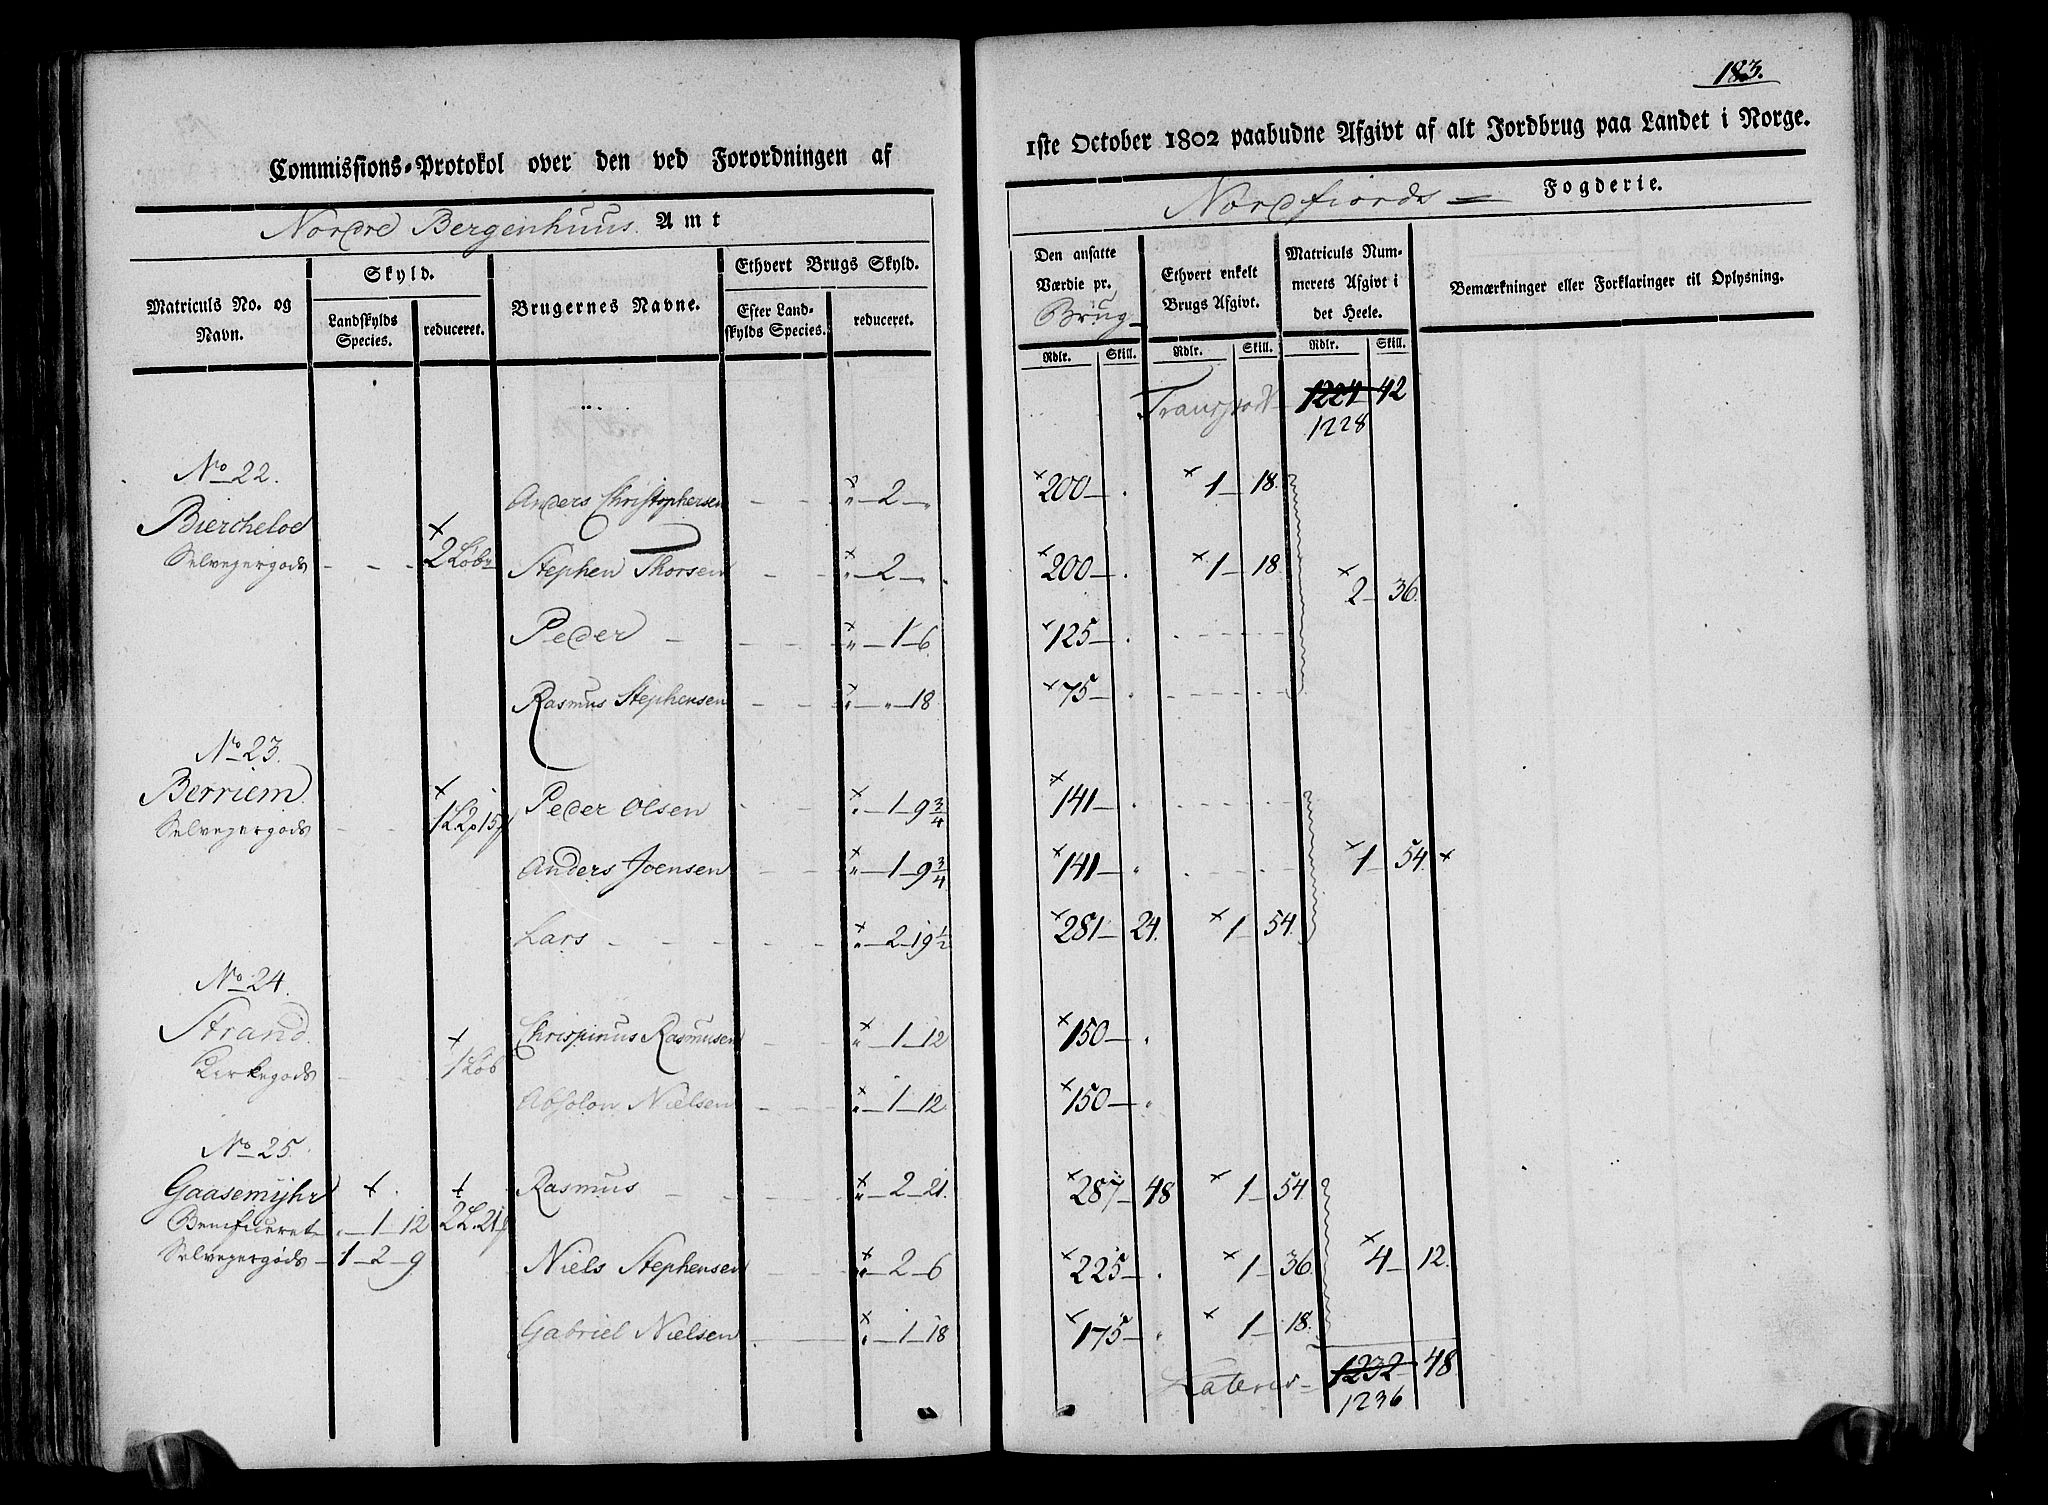 183.
Commissions-Protokol over den ved Forordningen af
1ste October 1802 paabudne Afgivt af alt Jordbrug paa Landet i Norge.
Nordre Bergenhuus Amt
Nordfiords Fogderie.
Matriculs No. og Navn.
Skyld.
Landskylds Species.
reduceret.
Brugernes Navne.
Ethvert Brugs Skyld.
Efter Landskylds Species.
reduceret.
Den ansatte Værdie pr. Brug
Ethvert enkelt Brugs Afgivt.
Matriculs Nummerets Afgivt i det Heele.
Bemærkninger eller Forklaringer til Oplysning.
Rdlr. Skill. Rdlr. Skill. Rdlr. Skill.
Transport 1224 42
1228
No 22.
Anders Christophersen " 2 " 200 . 1 18.
Biercheloe
Selvejergods 2 Løb Stephen Thorsen " 2 " 200 . 1 18. 2 36.
Peder " 1 6. 125 .
Rasmus Stephensen " " 18 75 .
No 23.
Berriem Peder Olsen " 1 9 3/4 141 .
Selvejergods 1 L 2 p 15
Anders Joensen " 1 9 3/4 141 " 1 54.
Lars " 2 19 1/2 281 24. 1 54.
No 24.
Strand Chrispinus Rasmusen " 1 12 150 .
Kirkegods 1 Løb
Absolon Nielsen " 1 12. 150 "
No 25.
Gaasemyhr Rasmus " 2 21. 287 48 1 54
Beneficeret " 1 12 2 L. 21
Selvejergods 1 2 9 Niels Stephensen " 2 6 225 . 1 36. 4 12.
Gabriel Nielsen " 1 18 175 " 1 18.
Lateris 1232 48.
1236